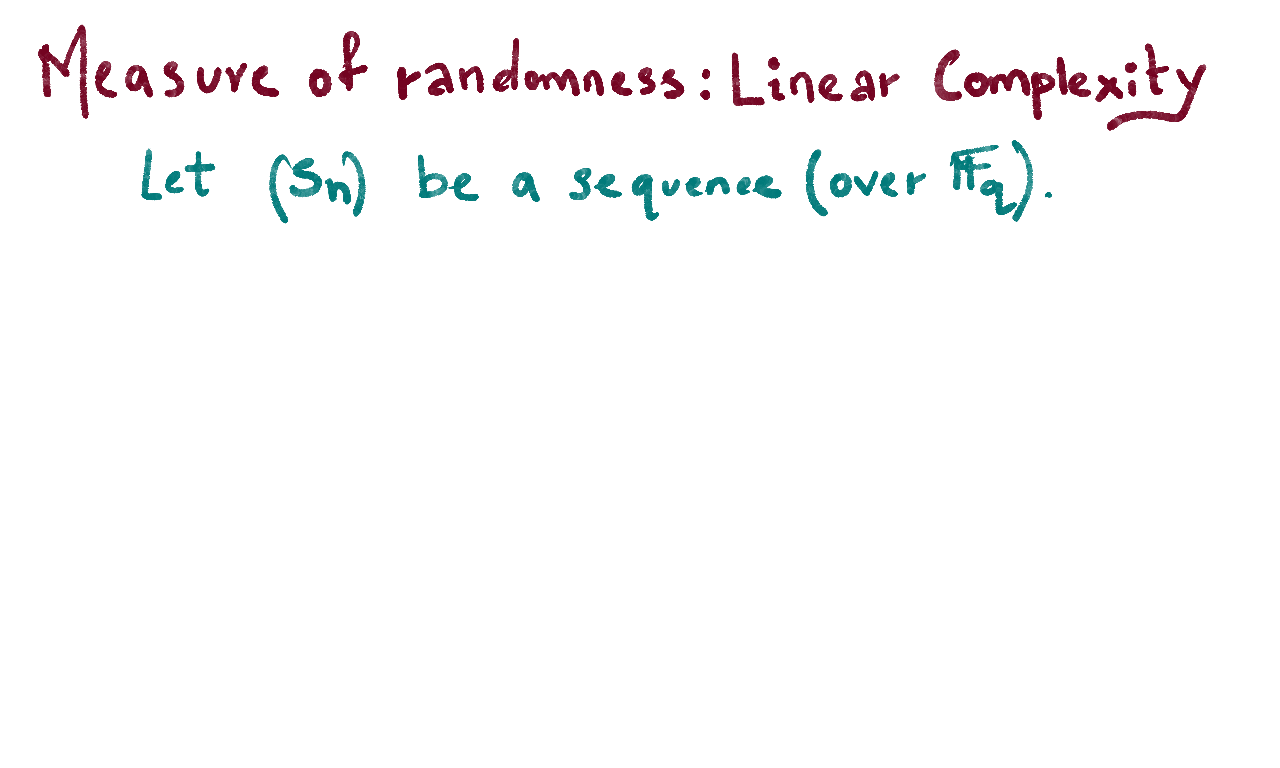 Measure of randomness: Linear Complexity
Let (Sn) be a sequence (over 𝔽q).